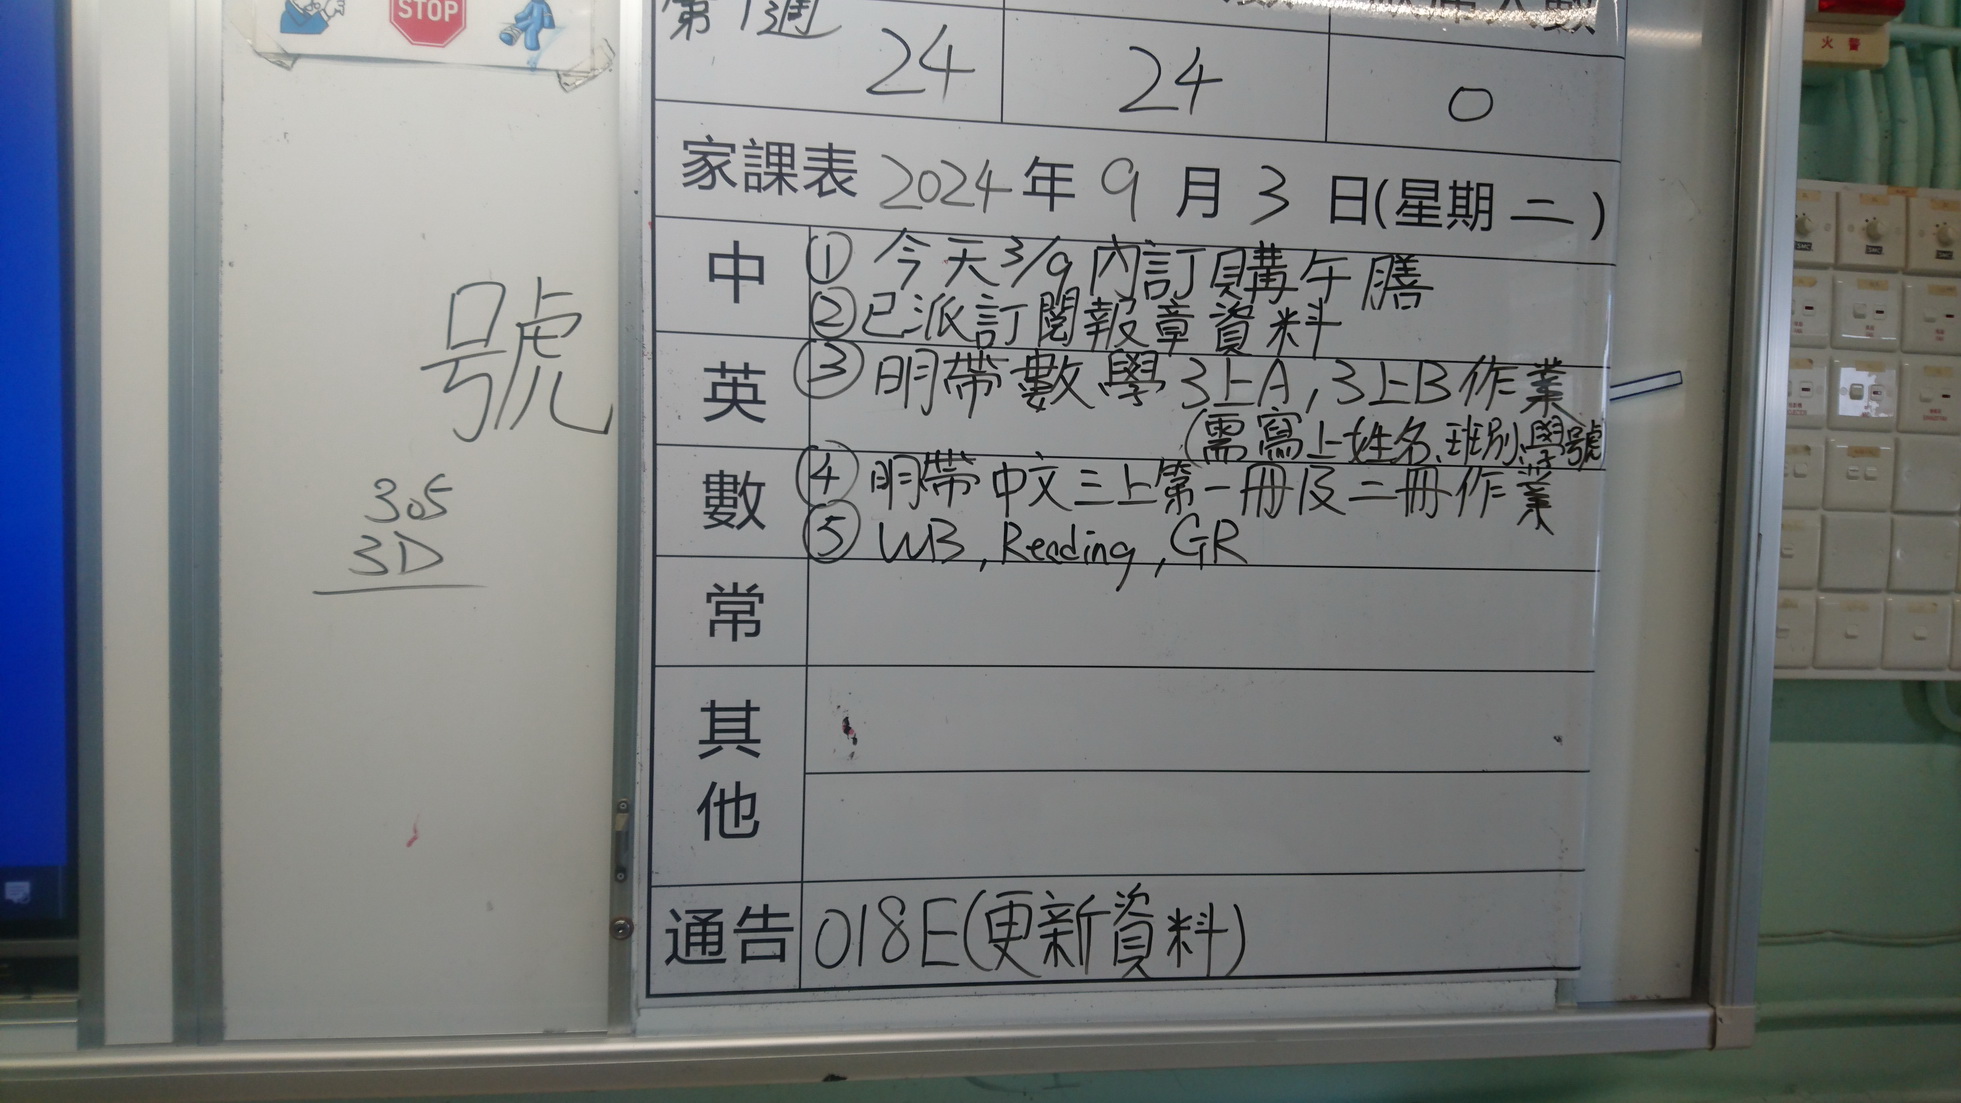 STOP
第1週
24 24 0
火警
家課表 2024年 9月 3日(星期二)
中 ① 今天3/9內訂購午膳
② 已派訂閱報章資料
英 ③ 明帶數學3上A, 3上B作業
(需寫上姓名、班別、學號
數 ④ 明帶中文三上第一冊及二冊作業
⑤ WB, Reading, GR
常
其他
通告 018E(更新資料)
號
305
3D